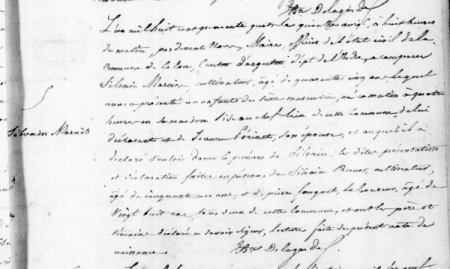 Delagarde
L'an mil huit cent quarante quatre le quinze avril, à huit heures
du matin, par devant Nous, Maire, officier de l'état civil de la
Commune de Canton d'argenton dépt de l'Indre, a comparu
Silvain Marais, cultivateur, âgé de quarante cinq ans lequel
nous a présenté un enfant du sexe masculin, né ce matin à quatre
heures en sa maison sise au chef lieu de cette commune, de lui
déclarant et de Jeanne son épouse, et auquel il a
déclaré vouloir donner le prénom de Silvain; les dites présentation
et déclaration faites en présence de Silvain cultivateur,
âgé de cinquante un ans, et de pierre laboureur, âgé de
Vingt huit ans, tous deux de cette commune, et ont les père et
témoins déclaré ne savoir signer, lecture faite du présent acte de
naissance.
Silvain Marais
Delagarde